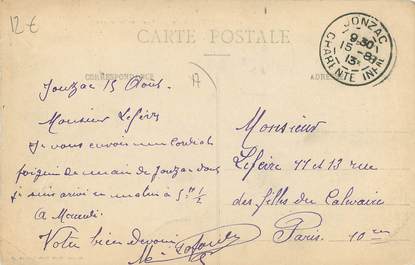 12 €
CARTE POSTALE
CORRESPONDANCE
ADRESSE
JONZAC
9-30
15 -8
13
CHARENTE INFRE
Jonzac 15 Aout.
Monsieur Lefèvre
Je vous envoie un cordial
poignée de main de Jonzac dont
je suis arrivé ce matin à 5h 1/2
a Mercredi
Votre bien dévoué
Monsieur
Lefèvre 11 et 13 rue
des filles du Calvaire
Paris. 10em